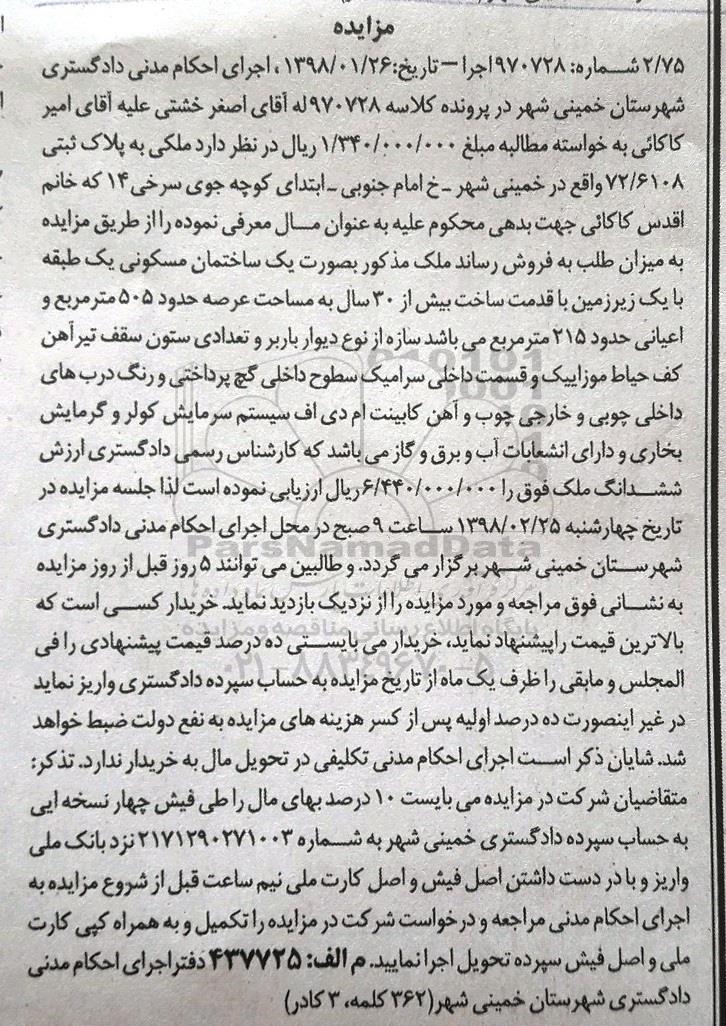 مزایده
۲/۷۵ شماره: ۹۷۰۷۲۸اجرا – تاریخ:۱۳۹۸/۰۱/۲۶ ، اجرای احکام مدنی دادگستری
شهرستان خمینی شهر در پرونده کلاسه ۹۷۰۷۲۸له آقای اصغر خشتی علیه آقای امیر
کاکائی به خواسته مطالبه مبلغ ۱/۳۴۰/۰۰۰/۰۰۰ ریال در نظر دارد ملکی به پلاک ثبتی
۷۲/۶۱۰۸ واقع در خمینی شهر - خ امام جنوبی - ابتدای کوچه جوی سرخی۱۴ که خانم
اقدس کاکائی جهت بدهی محکوم علیه به عنوان مال معرفی نموده را از طریق مزایده
به میزان طلب به فروش رساند ملک مذکور بصورت یک ساختمان مسکونی یک طبقه
با یک زیرزمین با قدمت ساخت بیش از ۳۰ سال به مساحت عرصه حدود ۵۰۵ مترمربع و
اعیانی حدود ۲۱۵ مترمربع می باشد سازه از نوع دیوار باربر و تعدادی ستون سقف تیرآهن
کف حیاط موزاییک و قسمت داخلی سرامیک سطوح داخلی گچ پرداختی و رنگ درب های
داخلی چوبی و خارجی چوب و آهن کابینت ام دی اف سیستم سرمایش کولر و گرمایش
بخاری و دارای انشعابات آب و برق و گاز می باشد که کارشناس رسمی دادگستری ارزش
ششدانگ ملک فوق را ۶/۴۴۰/۰۰۰/۰۰۰ریال ارزیابی نموده است لذا جلسه مزایده در
تاریخ چهارشنبه ۱۳۹۸/۰۲/۲۵ ساعت ۹ صبح در محل اجرای احکام مدنی دادگستری
ParsNamadData
شهرستان خمینی شهر برگزار می گردد. و طالبین می توانند ۵ روز قبل از روز مزایده
به نشانی فوق مراجعه و مورد مزایده را از نزدیک بازدید نماید. خریدار کسی است که
پایگاه اطلاع رسانی مناقصه و مزایده
بالاترین قیمت راپیشنهاد نماید، خریدار می بایستی ده درصد قیمت پیشنهادی را فی
۰۲۱-۸۸۳۴۹۶۷۰-۵
المجلس و مابقی را ظرف یک ماه از تاریخ مزایده به حساب سپرده دادگستری واریز نماید
در غیر اینصورت ده درصد اولیه پس از کسر هزینه های مزایده به نفع دولت ضبط خواهد
شد. شایان ذکر است اجرای احکام مدنی تکلیفی در تحویل مال به خریدار ندارد. تذکر:
متقاضیان شرکت در مزایده می بایست ۱۰ درصد بهای مال را طی فیش چهار نسخه ایی
به حساب سپرده دادگستری خمینی شهر به شماره ۲۱۷۱۲۹۰۲۷۱۰۰۳ نزد بانک ملی
واریز و با در دست داشتن اصل فیش و اصل کارت ملی نیم ساعت قبل از شروع مزایده به
اجرای احکام مدنی مراجعه و درخواست شرکت در مزایده را تکمیل و به همراه کپی کارت
ملی و اصل فیش سپرده تحویل اجرا نمایید. م الف: ۴۳۷۷۲۵ دفتر اجرای احکام مدنی
دادگستری شهرستان خمینی شهر(۳۶۲ کلمه، ۳ کادر)